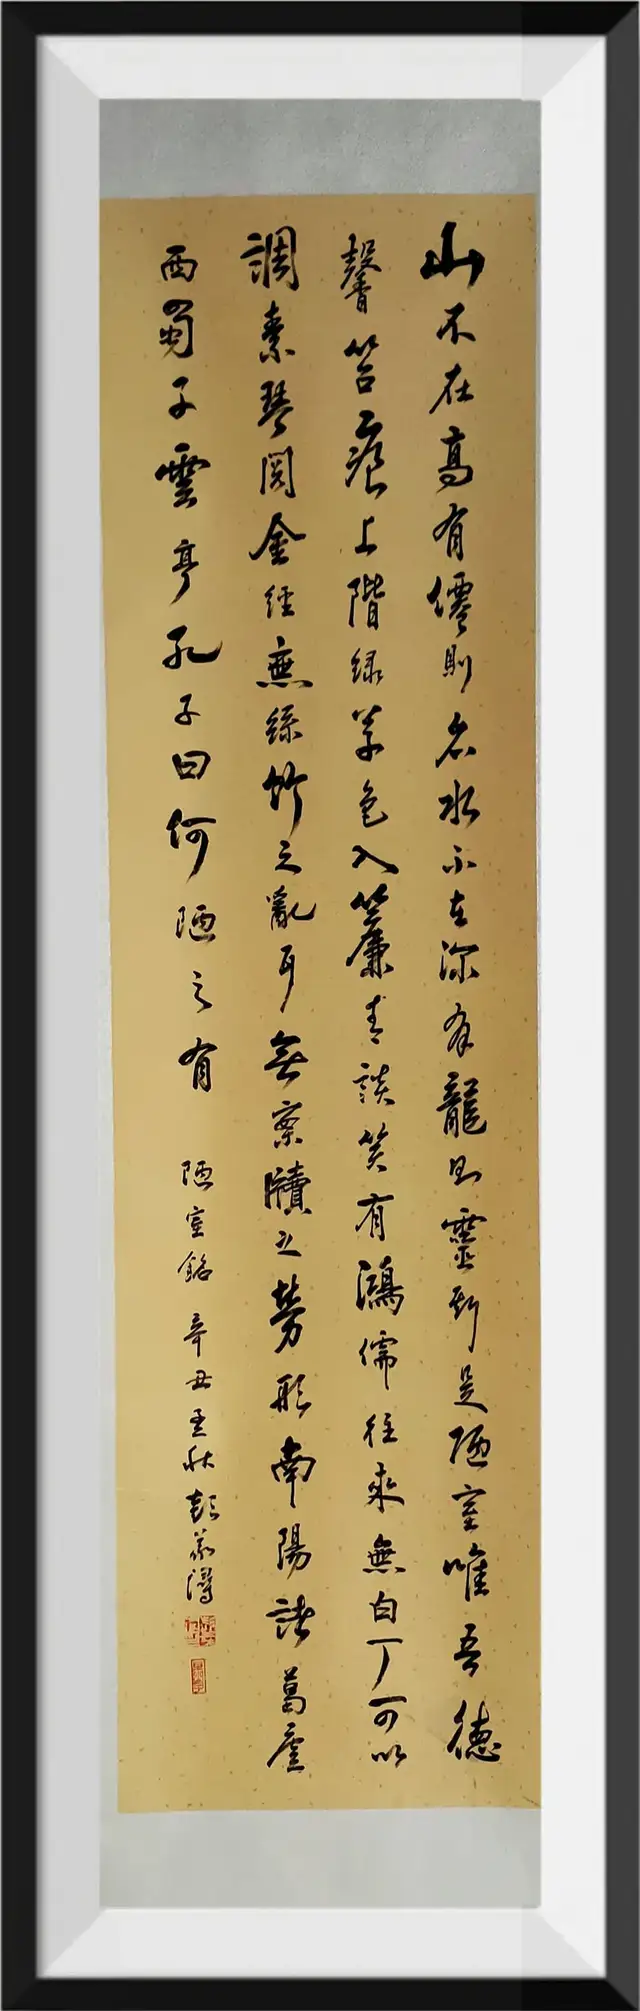 山不在高有僊則名水不在深有龍則靈斯是陋室唯吾德
馨苔痕上階綠草色入簾青談笑有鴻儒往來無白丁可以
調素琴閱金經無絲竹之亂耳無案牘之勞形南陽諸葛廬
西蜀子雲亭孔子曰何陋之有 陋室銘 辛丑孟秋 彭